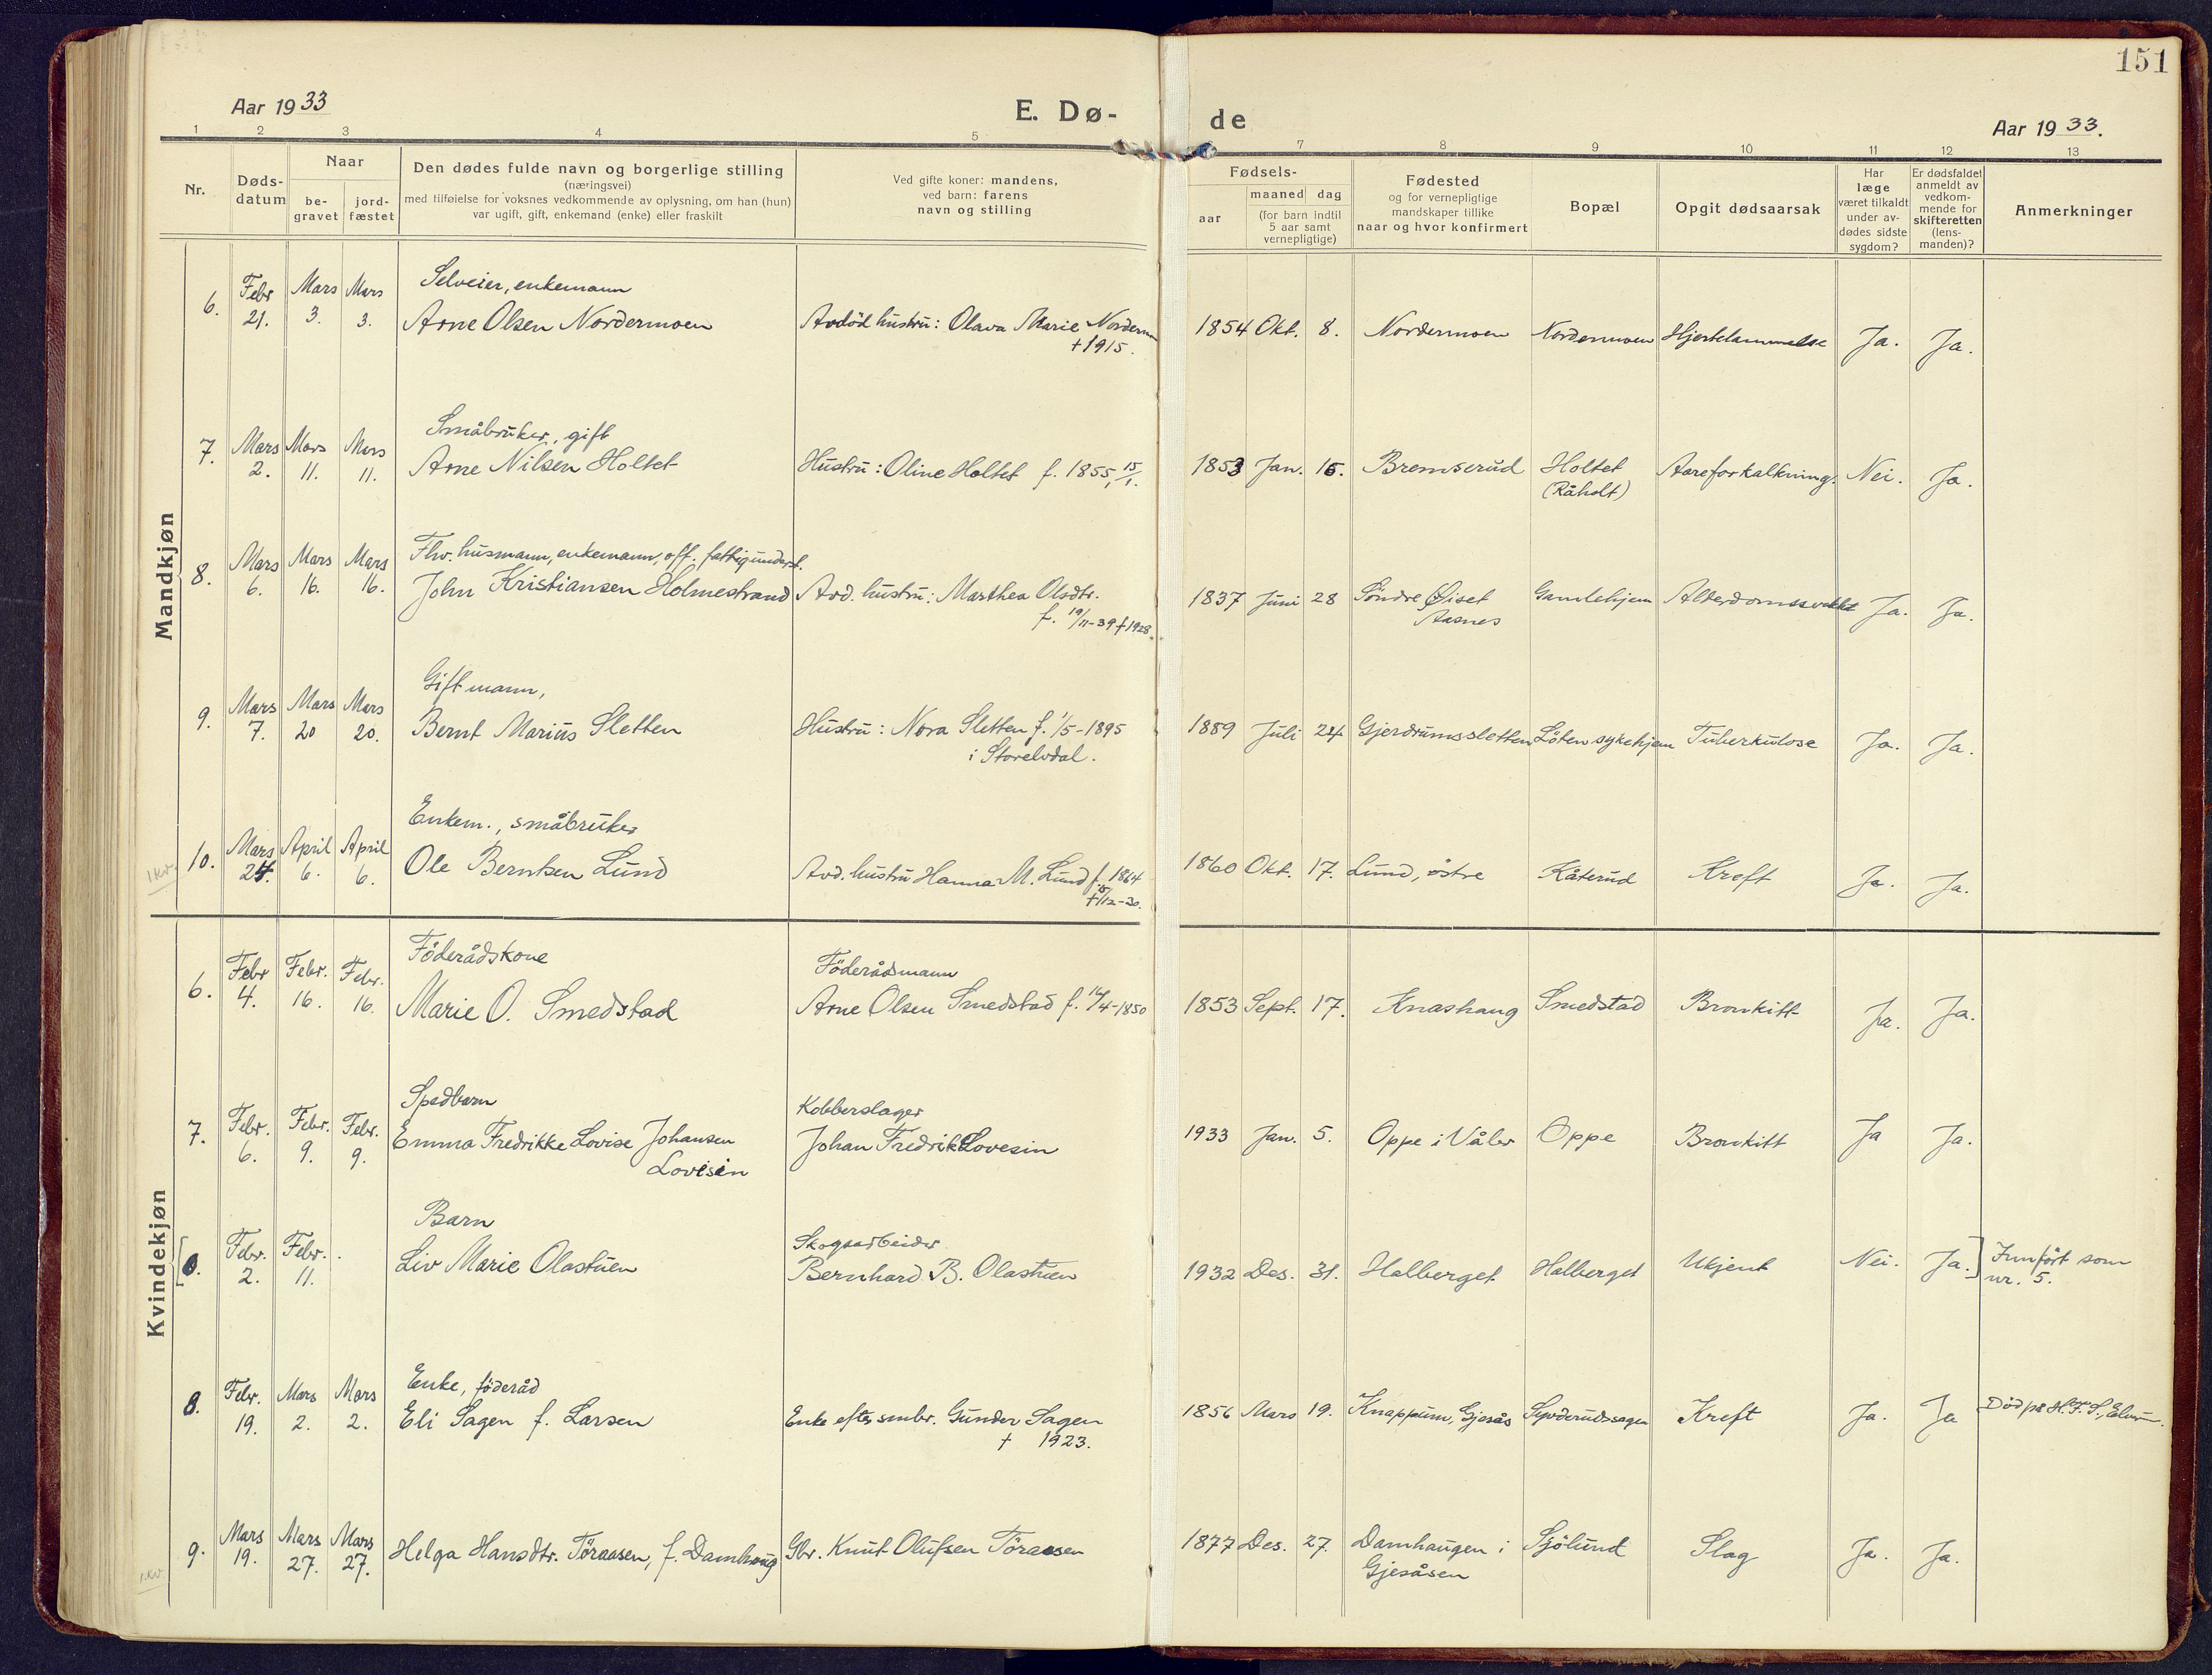 151
Aar 1933
E. Dø-
de
Aar 1933.
1 2 3 4 5 7 8 9 10 11 12 13
Nr.
Døds-
datum
Naar
be-
gravet
jord-
fæstet
Den dødes fulde navn og borgerlige stilling
(næringsvei)
med tilføielse for voksnes vedkommende av oplysning, om han (hun)
var ugift, gift, enkemand (enke) eller fraskilt
Ved gifte koner: mandens,
ved barn: farens
navn og stilling
Fødsels-
aar
maaned dag
(for barn indtil
5 aar samt
vernepligtige)
Fødested
og for vernepligtige
mandskaper tillike
naar og hvor konfirmert
Bopæl
Opgit dødsaarsak
Har
læge
været tilkaldt
under av-
dødes sidste
sygdom?
Er dødsfaldet
anmeldt av
vedkom-
mende for
skifteretten
(lens-
manden)?
Anmerkninger
Mandkjøn
6. Febr 21. Mars 3. Mars 3.
Selveier, enkemann
Arne Olsen Nordermoen
Avdöd hustru: Olava Marie
+ 1915.
1854 Okt. 8. Nordermoen Nordermoen Hjertelammelse Ja. Ja.
7. Mars 2. Mars 11. Mars 11.
Småbruker, gift
Arne Nilsen Holtet
Hustru: Oline Holtet f. 1855, 15/1.
1853 Jan. 16. Bremserud Holtet
(Råholt)
Aareforkalkning. Nei. Ja.
8. Mars 6. Mars 16. Mars 16.
Fhv. husmann, enkemann, off. fattigunderst.
John Kristiansen Holmestrand
Avd. hustru: Marthea Olsdtr.
f. 19/11-39 + 1928.
1837 Juni 28 Söndre Öiset
Aasnes
Gamlehjem Alderdomssvekket Ja. Ja.
9. Mars 7. Mars 20 Mars 20.
Gift mann,
Bernt Marius Sletten
Hustru: Nora Sletten f. 1/5-1895
i Storelvdal.
1889 Juli 24 Gjerdrumssletten Löten sykehjem Tuberkulose Ja. Ja.
1. kv.
10. Mars April 6. April 6.
Enkem., småbruker
Ole Berntsen Lund
Avd. hustru Hanna M. Lund f. 1864
1860 Okt. 17. Lund, östre Kåterud Kreft Ja. Ja.
Kvindekjøn
6. Febr 4. Febr. 16. Febr. 16.
Föderådskone
Marie O. Smedstad
Föderådsmann
Arne Olsen Smedstad f. 14/4-1850
1853 Sept. 17. Knashaug Smedstad Bronkitt Ja. Ja.
7. Febr. 6. Febr. 9. Febr. 9.
Spedbarn
Emma Fredrikke Lovise Johansen
Lovisin
Kobberslager
Johan Fredrik Lovesin
1933 Jan. 5. Oppe i Våler Oppe Bronkitt Ja Ja.
Febr. 2. Febr. 11.
Barn
Liv Marie Olastuen
Skogsarbeider
Bernhard B. Olastuen
1932 Des. 31. Halberget Halberget Ukjent Nei. Ja. Innfört som
nr. 5.
8. Febr. 19. Mars 2. Mars 2.
Enke, föderåd
Eli Sagen f. Larsen
Enke efter smbr. Gunder Sagen
+ 1923.
1856 Mars 19. Knappum, Gjesås Kreft Ja. Ja Död på H.F.S., Elverum.
1. kv.
9. Mars 19. Mars 27. Mars 27.
Helga Hansdtr. Töraasen, f. Damhaug
Gbr. Knut Olufsen Töraasen
1877 Des. 27. Damhaugen i
Gjesåsen
Sjölund Slag Ja. Ja.